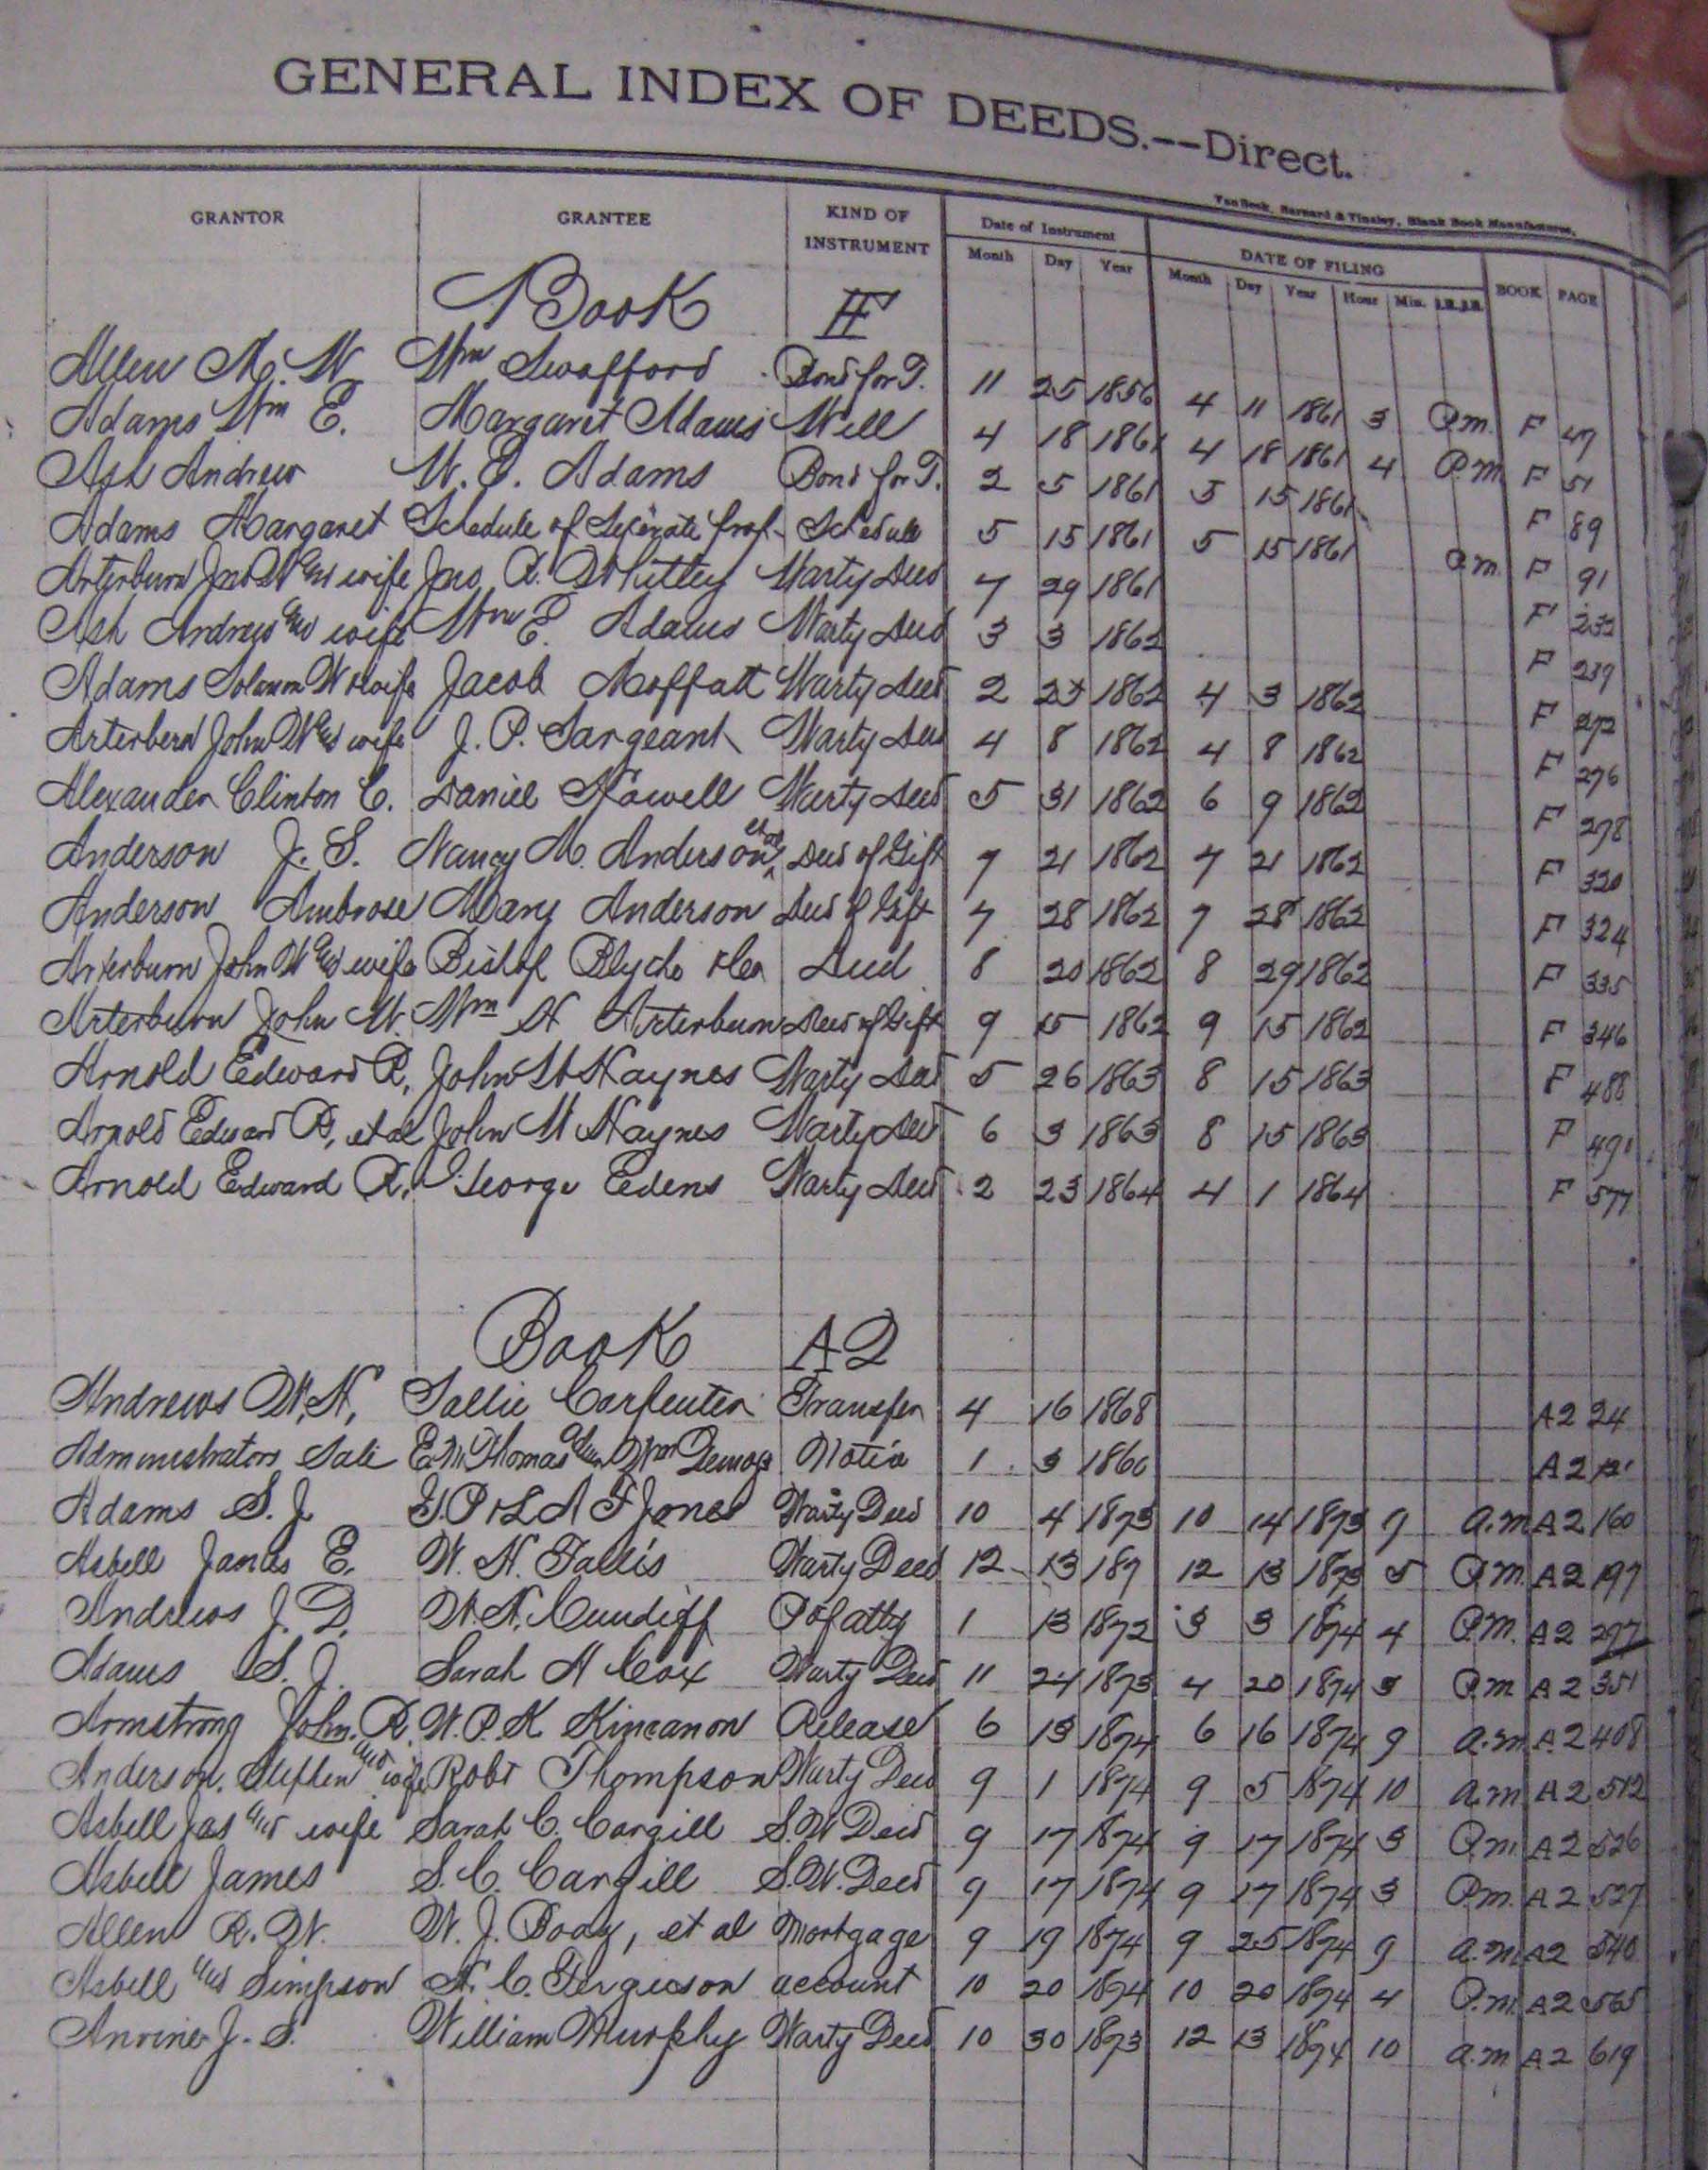 GENERAL INDEX OF DEEDS.--Direct.
VanBeek, Barnard & Tinsley, Blank Book Manufacturers.
GRANTOR GRANTEE KIND OF INSTRUMENT Date of Instrument DATE OF FILING BOOK PAGE
Month Day Year Month Day Year Hour Min.
Book F
Allen M. W. Wm Swafford Bond for T. 11 25 1856 4 11 1861 3 P.m. F 47
Adams Wm E. Margaret Adams Will 4 18 1861 4 18 1861 4 P.M. F 51
Ash Andrew W. E. Adams Bond for T. 2 5 1861 5 15 1861 F 89
Adams Margaret Schedule of Seperate Prop. Schedule 5 15 1861 5 15 1861 P.m. F 91
Arterburn Jno W and wife Jno R. Whitley Warty Deed 7 29 1861 F 232
Ash Andrew and wife Wm E. Adams Warty Deed 3 3 1862 F 239
Adams Soloman W & wife Jacob Moffatt Warty Deed 2 25 1862 4 3 1862 F 272
Arterbern John W and wife J. P. Sargeant Warty Deed 4 8 1862 4 8 1862 F 276
Alexander Clinton C. Daniel Howell Warty Deed 5 31 1862 6 9 1862 F 278
Anderson J. S. Nancy M. Anderson et al Deed of Gift 7 21 1862 7 21 1862 F 320
Anderson Ambrose Mary Anderson Deed of Gift 7 28 1862 7 28 1862 F 324
Arterburn John W and wife Bishop Blyche Deed 8 20 1862 8 29 1862 F 335
Arterburn John W. Wm H Arterburn Deed of Gift 9 15 1862 9 15 1862 F 346
Arnold Edward R. John W Haynes Warty Deed 5 26 1863 8 15 1863 F 488
Arnold Edward R, et al John W Haynes Warty Deed 6 3 1863 8 15 1863 F 491
Arnold Edward R. George Edens Warty Deed 2 23 1864 4 1 1864 F 577
Book A2
Andrews W. H. Sallie Carpenter Transfer 4 16 1868 A2 24
Administrators Sale E. M Thomas Wm Notice 1 3 1860 A2
Adams S. J. & L A F Jones Warty Deed 10 4 1873 10 14 1873 9 a.m A2 160
Asbell James E. W. H. Fallis Warty Deed 12 13 187 12 13 1873 5 P.M. A2 197
Andrews J. D. W. H. Cundiff P of atty 1 13 1872 3 3 1874 4 P.M. A2 297
Adams S. J. Sarah A Cox Warty Deed 11 24 1873 4 20 1874 3 P.m A2 351
Armstrong John R. W. P. K Kincanon Release 6 13 1874 6 16 1874 9 a.m A2 408
Anderson Stephen and wife Robt Thompson Warty Deed 9 1 1874 9 5 1874 10 a.m A2 512
Asbell Jas and wife Sarah C. Cargill S. W Deed 9 17 1874 9 17 1874 3 P.m. A2 526
Asbell James S. C. Cargill S. W. Deed 9 17 1874 9 17 1874 3 P.m. A2 527
Allen R. W. W. J. Doay, et al Mortgage 9 19 1874 9 25 1874 9 a.m A2 540
Asbell and Simpson H. C. Ferguson account 10 20 1874 10 20 1874 4 P.m. A2 565
Anvine J. S. William Murphy Warty Deed 10 30 1873 12 13 1874 10 a.m A2 619